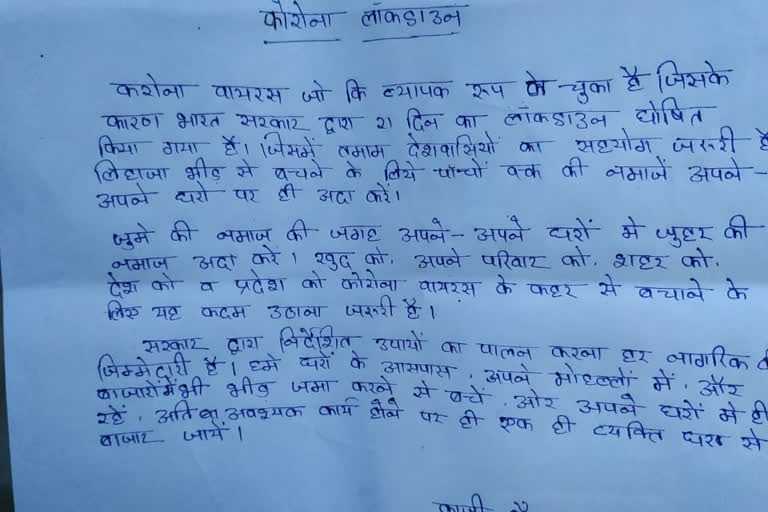 कोरोना लॉकडाउन
करोना वायरस जो कि व्यापक रूप ले चुका है जिसके
कारण भारत सरकार द्वारा 21 दिन का लॉकडाउन घोषित
किया गया है। जिसमें तमाम देशवासियों का सहयोग जरूरी है
लिहाजा भीड़ से बचने के लिये पाँचों वक्त की नमाजें अपने-
अपने घरो पर ही अदा करें।
जुमे की नमाज की जगह अपने-अपने घरों मे जुहर की
नमाज अदा करें। खुद को, अपने परिवार को, शहर को,
देश को व प्रदेश को कोरोना वायरस के कहर से बचाने के
लिए यह कदम उठाना जरूरी है।
सरकार द्वारा निर्देशित उपायों का पालन करना हर नागरिक
जिम्मेदारी है। हमे घरों के आसपास, अपने मोहल्लों में, और
बाजारों में भी भीड़ जमा करने से बचें, और अपने घरों मे ही
रहें, अति आवश्यक कार्य होने पर ही एक ही व्यक्ति घर से
बाजार जायें।